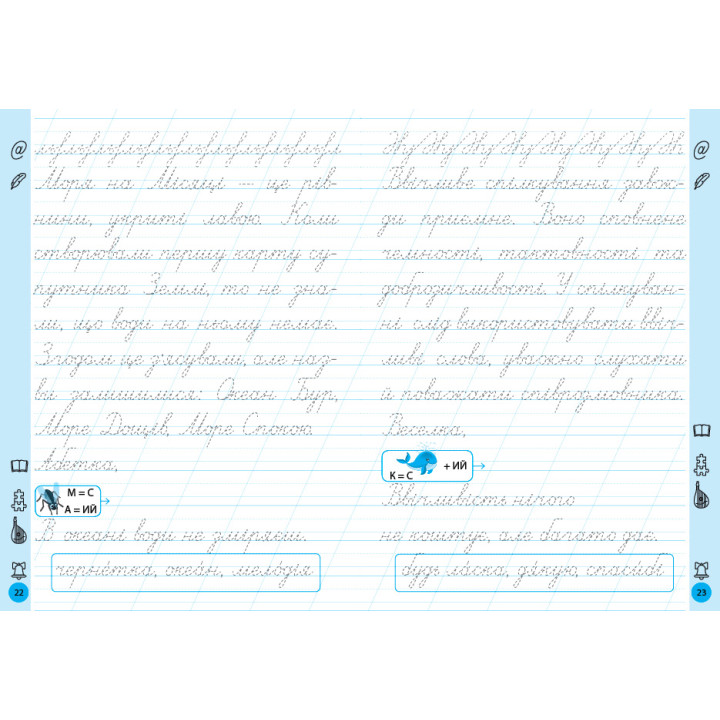 Моря на Місяці — це рів-
нини, укриті лавою. Коли
створювали першу карту су-
путника Землі, то не зна-
ли, що води на ньому немає.
Згодом це з'ясували, але наз-
ви залишилися: Океан Бур,
Море Дощів, Море Спокою.
Абетка,
М = С
А = ИЙ
В океані води не зміряєш.
черне́тка, океа́н, мело́дія
22
Ввічливе спілкування завж-
ди приємне. Воно сповнене
чемності, тактовності та
доброзичливості. У спілкуван-
ні слід використовувати ввіч-
ливі слова, уважно слухати
й поважати співрозмовника.
Веселка,
К = С + ИЙ
Ввічливість нічого
не коштує, але багато дає.
будь ла́ска, дя́кую, спаси́бі
23